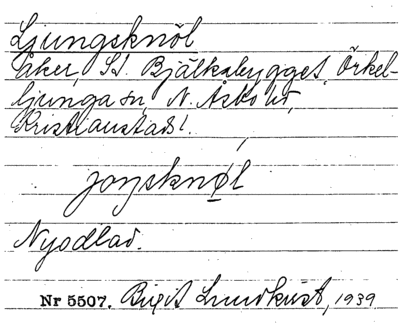 Ljungsknöl
Åker, St. Bjälkabygget, Örkel-
ljunga sn, N. Åsbo hd,
Kristianstads l.
joŋsknøl
Nyodlad.
Nr 5507. Birgit Lundkvist, 1939